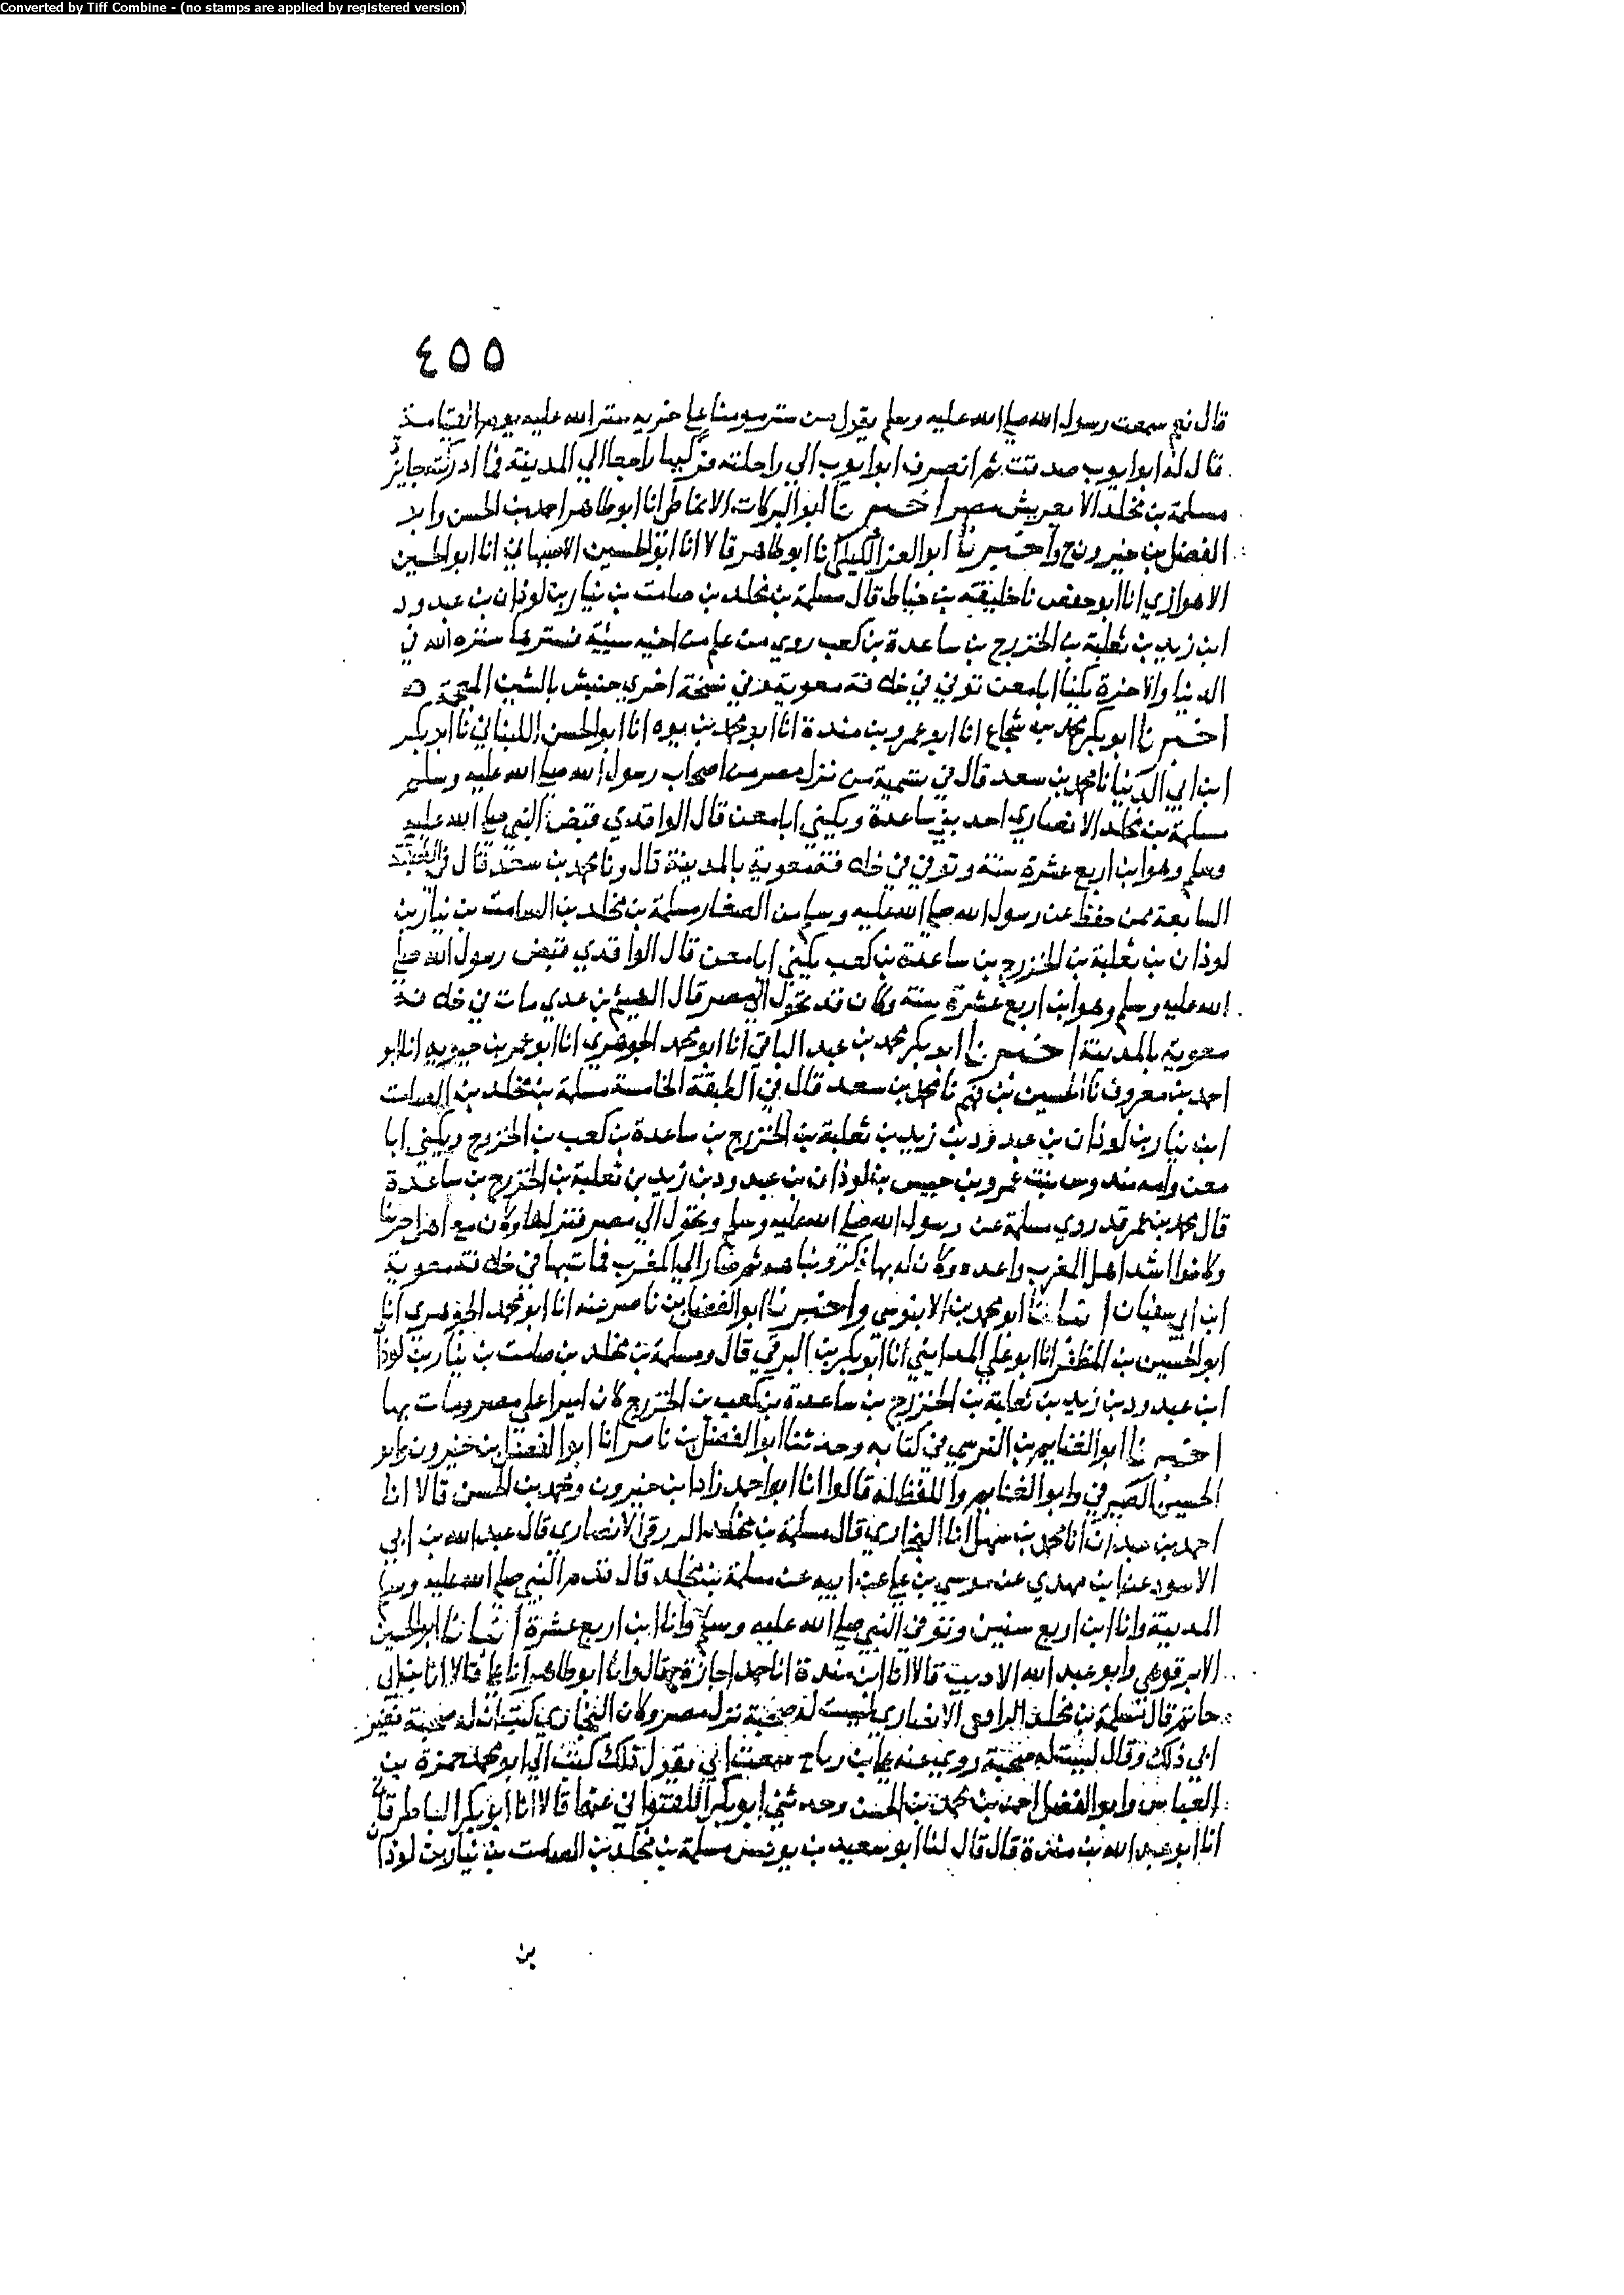 Converted by Tiff Combine - (no stamps are applied by registered version)
٤٥٥
قال نعم سمعت رسول الله صلى الله عليه وسلم يقول من ستر مومنا على خزيه ستر الله عليه يوم القيامة
قال له ابو ايوب صدقت ثم انصرف ابو ايوب الي راحلته فركبها راجعا الي المدينة فما ادركته جايزة
مسلمة بن مخلد الا بعريش مصر اخبرنا ابو البركات الانماطي انا ابو طاهر احمد بن الحسن وابو
الفضل بن خيرون ح واخبرنا ابو العز الكيلي انا ابو طاهر قالا انا ابو الحسين الاصبهاني انا ابو الحسين
الاهوازي انا ابو حفص نا خليفة بن خياط قال مسلمة بن مخلد بن صامت بن نيار بن لوذان بن عبد ود
ابن زيد بن ثعلبة بن الخزرج بن ساعدة بن كعب روي من علم من اخيه سيئة فسترها ستره الله في
الدنيا والاخرة يكنا ابا معن توفي في خلافة معوية وفي نسخة اخري حنبش بالشين المعجمة
اخبرنا ابو بكر محمد بن شجاع انا ابو عمرو بن مندة انا ابو محمد بن يوه انا ابو الحسن اللنباني نا ابو بكر
ابن ابي الدنيا نا محمد بن سعد قال في تسمية من نزل مصر من اصحاب رسول الله صلى الله عليه وسلم
مسلمة بن مخلد الانصاري احد بني ساعدة ويكني ابا معن قال الواقدي قبض النبي صلى الله عليه
وسلم وهو ابن اربع عشرة سنة وتوفي في خلافة معوية بالمدينة قال ونا محمد بن سعد قال في الطبقة
السابعة ممن حفظ عن رسول الله صلى الله عليه وسلم من الصغار مسلمة بن مخلد بن الصامت بن نيار بن
لوذان بن ثعلبة بن الخزرج بن ساعدة بن كعب يكني ابا معن قال الواقدي قبض رسول الله صلى
الله عليه وسلم وهو ابن اربع عشرة سنة وكان قد تحول الي مصر قال الهيثم بن عدي مات في خلافة
معوية بالمدينة اخبرنا ابو بكر محمد بن عبد الباقي انا ابو محمد الجوهري انا ابو عمر بن حيويه انا ابو
احمد بن معروف نا الحسين بن فهم نا محمد بن سعد قال في الطبقة الخامسة مسلمة بن مخلد بن الصامت
ابن نيار بن لوذان بن عبد ود بن زيد بن ثعلبة بن الخزرج بن ساعدة بن كعب بن الخزرج ويكني ابا
معن وامه بنت عمرو بن حبيس بن لوذان بن عبد ود بن زيد بن ثعلبة بن الخزرج بن ساعدة
قال محمد بن عمر قد روي مسلمة عن رسول الله صلى الله عليه وسلم وتحول الي مصر فنزلها وكان مع اهل خربتا
وكانوا اشد اهل المغرب واعده وكان له بها ذكر ونباهه ثم صار الي المغرب فمات بها في خلافة معوية
ابن ابي سفيان انبانا ابو محمد بن الابنوسي واخبرنا ابو الفضل بن ناصر عنه انا ابو محمد الجوهري انا
ابو الحسين بن المظفر انا ابو علي المدايني انا ابو بكر بن البرقي قال ومسلمة بن مخلد بن صامت بن نيار بن لوذان
ابن عبد ود بن زيد بن ثعلبة بن الخزرج بن ساعدة بن كعب بن الخزرج كان اميرا على مصر ومات بها
اخبرنا ابو الغنايم بن النرسي في كتابه وحدثنا ابو الفضل بن ناصر انا ابو الفضل بن خيرون وابو
الحسين الصيرفي وابو الغنايم واللفظ له قالوا انا ابو احمد زاد ابن خيرون ومحمد بن الحسن قالا انا
احمد بن عبدان انا محمد بن سهل انا البخاري قال مسلمة بن مخلد الزرقي الانصاري قال عبد الله بن ابي
الاسود عن ابن مهدي عن موسي بن علي عن ابيه عن مسلمة بن مخلد قال قدم النبي صلى الله عليه وسلم
المدينة وانا ابن اربع سنين وتوفي النبي صلى الله عليه وسلم وانا ابن اربع عشرة انبانا ابو الحسين
الابرقوهي وابو عبد الله الاديب قالا انا ابن مندة انا حمد اجازة ح قال وانا ابو طاهر انا علي قالا انا ابن ابي
حاتم قال مسلمة بن مخلد الانصاري ليست له صحبة نزل مصر وكان البخاري كتب ان له صحبة فغير
ابي ذلك وقال ليست له صحبة روي عنه علي بن رباح سمعت ابي يقول ذلك كتب الي ابو محمد حمزة بن
العباس وابو الفضل احمد بن محمد بن الحسن وحدثني ابو بكر اللفتواني عنهما قالا انا ابو بكر الباطرقاني
انا ابو عبد الله بن مندة قال قال لنا ابو سعيد بن يونس مسلمة بن مخلد بن الصامت بن نيار بن لوذان
بن